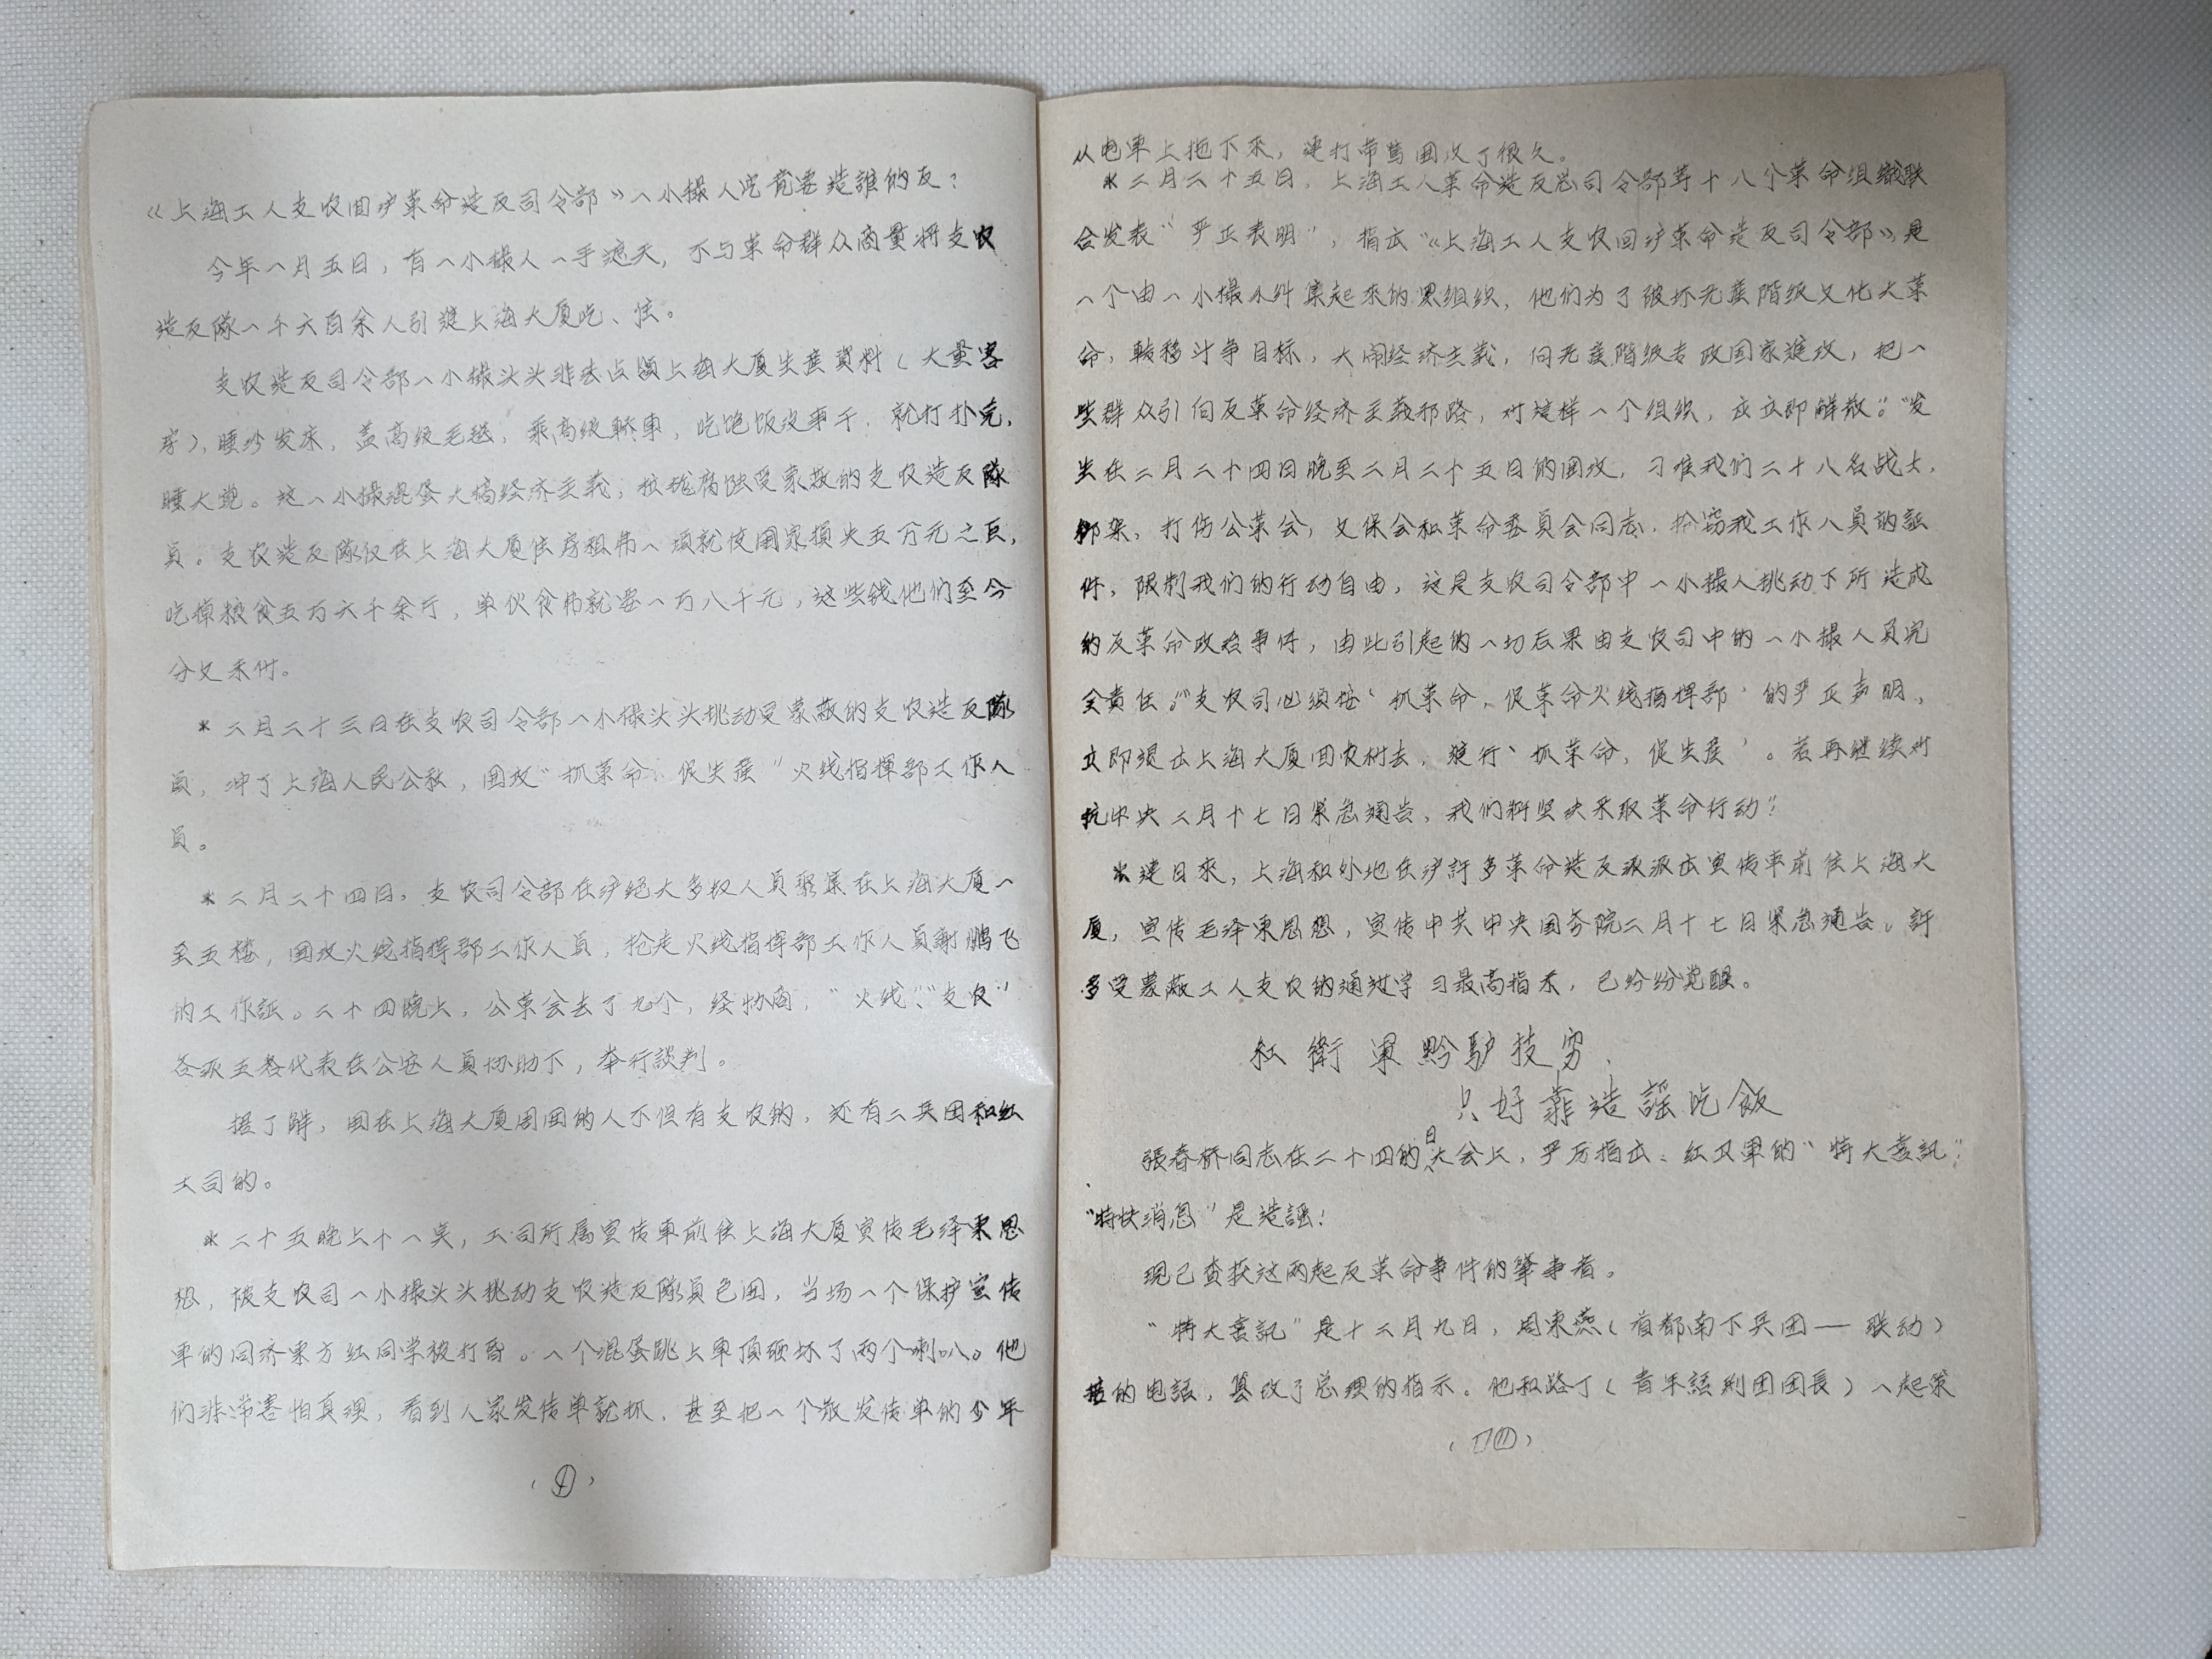 《上海工人支农回沪革命造反司令部》一小撮人究竟要造誰的反？
今年一月五日，有一小撮人一手遮天，不与革命群众商量将支农
造反隊一千六百余人引進上海大厦吃、住。
支农造反司令部一小撮头头非法占領上海大厦生産資料（大量客
房），睡沙发床，盖高级毛毯，乘高级轎車，吃饱饭没事干，就打扑克，
睡大觉。这一小撮混蛋大搞经济主義，拉拢腐蚀受蒙蔽的支农造反隊
員。支农造反隊仅在上海大厦住房租费一项就使国家損失五万元之巨，
吃掉粮食五万六千余斤，单伙食费就要一万八千元，这些钱他们至今
分文未付。
*二月二十三日在支农司令部一小撮头头挑动受蒙蔽的支农造反隊
員，冲了上海人民公社，围攻“抓革命、促生産”火线指挥部工作人
員。
*二月二十四日，支农司令部在沪绝大多数人員聚集在上海大厦一
至五楼，围攻火线指挥部工作人員，抢走火线指挥部工作人員謝鹏飞
的工作証。二十四晚上，公革会去了九个，经协商，“火线”“支农”
各派五名代表在公安人員协助下，举行談判。
据了解，围在上海大厦周围的人不但有支农的，还有二兵团和红
工司的。
*二十五晚上十一点，工司所属宣传車前往上海大厦宣传毛泽東思
想，被支农司一小撮头头挑动支农造反隊員包围，当场一个保护宣传
車的同济東方红同学被打昏。一个混蛋跳上車頂砸坏了两个喇叭。他
们非常害怕真理，看到人家发传单就抓，甚至把一个散发传单的少年
从电車上拖下来，連打带罵围攻了很久。
*二月二十五日，上海工人革命造反总司令部等十八个革命组織联
合发表“严正表明”，指出“《上海工人支农回沪革命造反司令部》，是
一个由一小撮人纠集起来的黑组织，他们为了破坏无産階级文化大革
命，転移斗争目标，大闹经济主義，向无産階级专政国家進攻，把一
些群众引向反革命经济主義邪路，对這样一个组织，应立即解散。”“发
生在二月二十四日晚至二月二十五日的围攻，刁难我们二十八名战士，
绑架，打伤公革会，文保会和革命委員会同志，扒窃我工作人員的証
件，限制我们的行动自由，这是支农司令部中一小撮人挑动下所造成
的反革命政治事件，由此引起的一切后果由支农司中的一小撮人員完
全責任。”“支农司必须按‘抓革命，促革命火线指挥部’的严正声明，
立即退出上海大厦回农村去，進行‘抓革命，促生産’。若再继续对
抗中央二月十七日紧急通告，我们将坚决采取革命行动”！
*連日来，上海和外地在沪許多革命造反派派出宣传車前往上海大
厦，宣传毛泽東思想，宣传中共中央国务院二月十七日紧急通告。許
多受蒙蔽工人支农的通过学习最高指示，已纷纷觉醒。
红衛軍黔驴技穷，
只好靠造謡吃飯
張春桥同志在二十四的日大会上，严厉指出：红卫軍的“特大喜訊”
“特快消息”是造謡！
現已查获这两起反革命事件的肇事者。
“特大喜訊”是十二月九日，周東燕（首都南下兵团——联动）
接的电話，篡改了总理的指示。他和路丁（青年話剧团团長）一起策
（十）
（十四）